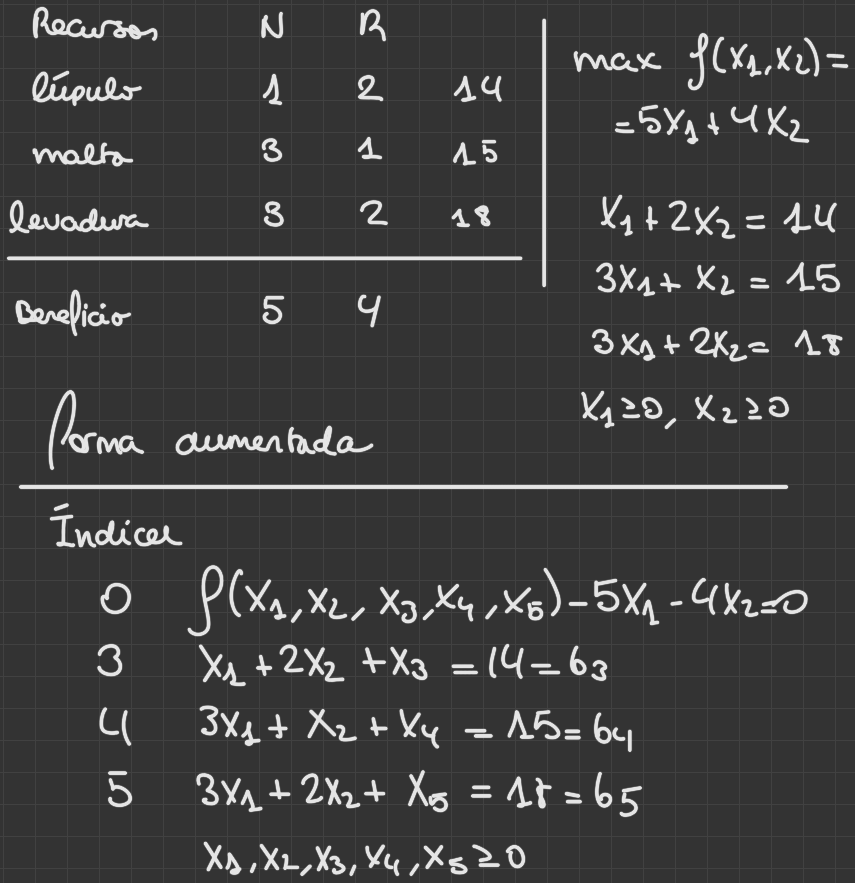 Recursos N R
lúpulo 1 2 14
malta 3 1 15
levadura 3 2 18
Beneficio 5 4
max f(x₁,x₂)=
=5x₁+4x₂
x₁+2x₂=14
3x₁+x₂=15
3x₁+2x₂=18
x₁≥0, x₂≥0
Forma aumentada
Índices
0 f(x₁,x₂,x₃,x₄,x₅)-5x₁-4x₂=0
3 x₁+2x₂+x₃=14=b₃
4 3x₁+x₂+x₄=15=b₄
5 3x₁+2x₂+x₅=18=b₅
x₁,x₂,x₃,x₄,x₅≥0